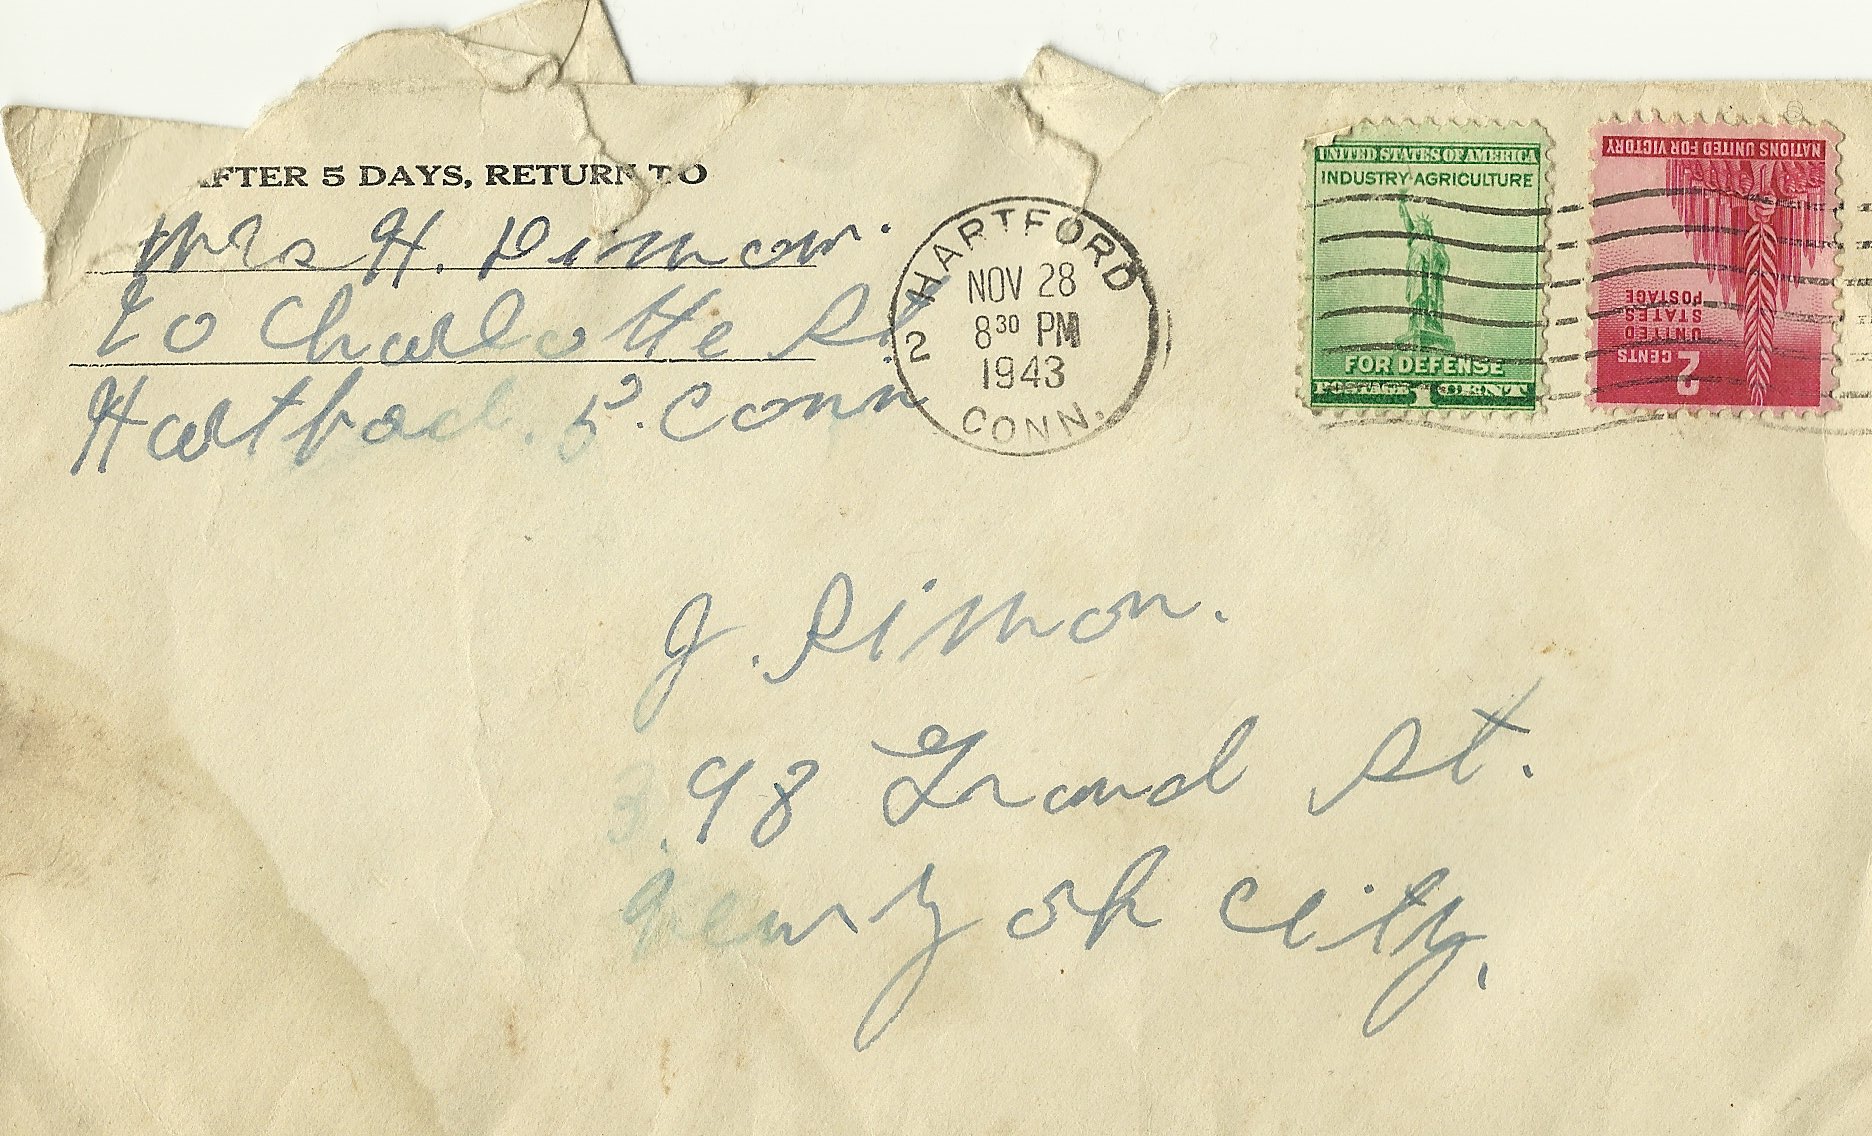 AFTER 5 DAYS, RETURN TO
Mrs H. Dimon.
20 Charlotte St
Hartford. 5. Conn
HARTFORD 2
NOV 28
8 30 PM
1943
CONN.
UNITED STATES OF AMERICA
INDUSTRY·AGRICULTURE
FOR DEFENSE
POSTAGE 1 CENT
NATIONS UNITED FOR VICTORY
UNITED
STATES
POSTAGE
2 CENTS
J. Simon.
98 Grand St.
New York City.